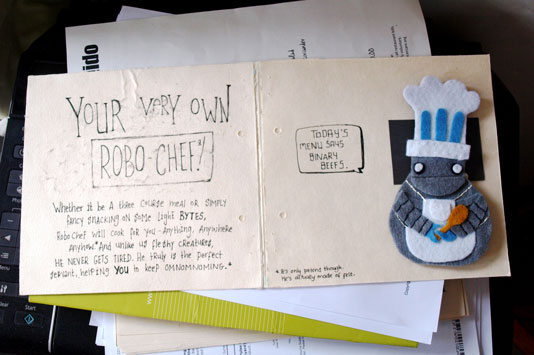 YOUR VERY OWN
ROBO-CHEF!*
Whether it be A three course meal or simply
fancy snacking on some light BYTES,
Robo Chef will cook for you - Anything, Anywhere
Anyhow.* And unlike us fleshy creatures,
HE NEVER GETS TIRED. He truly is the perfect
servant, helping YOU to keep OMNOMNOMING.*
TODAY'S
MENU SAYS
BINARY
BEEFS.
* It's only pretend though.
He's actually made of felt.
eido
Menu
Start